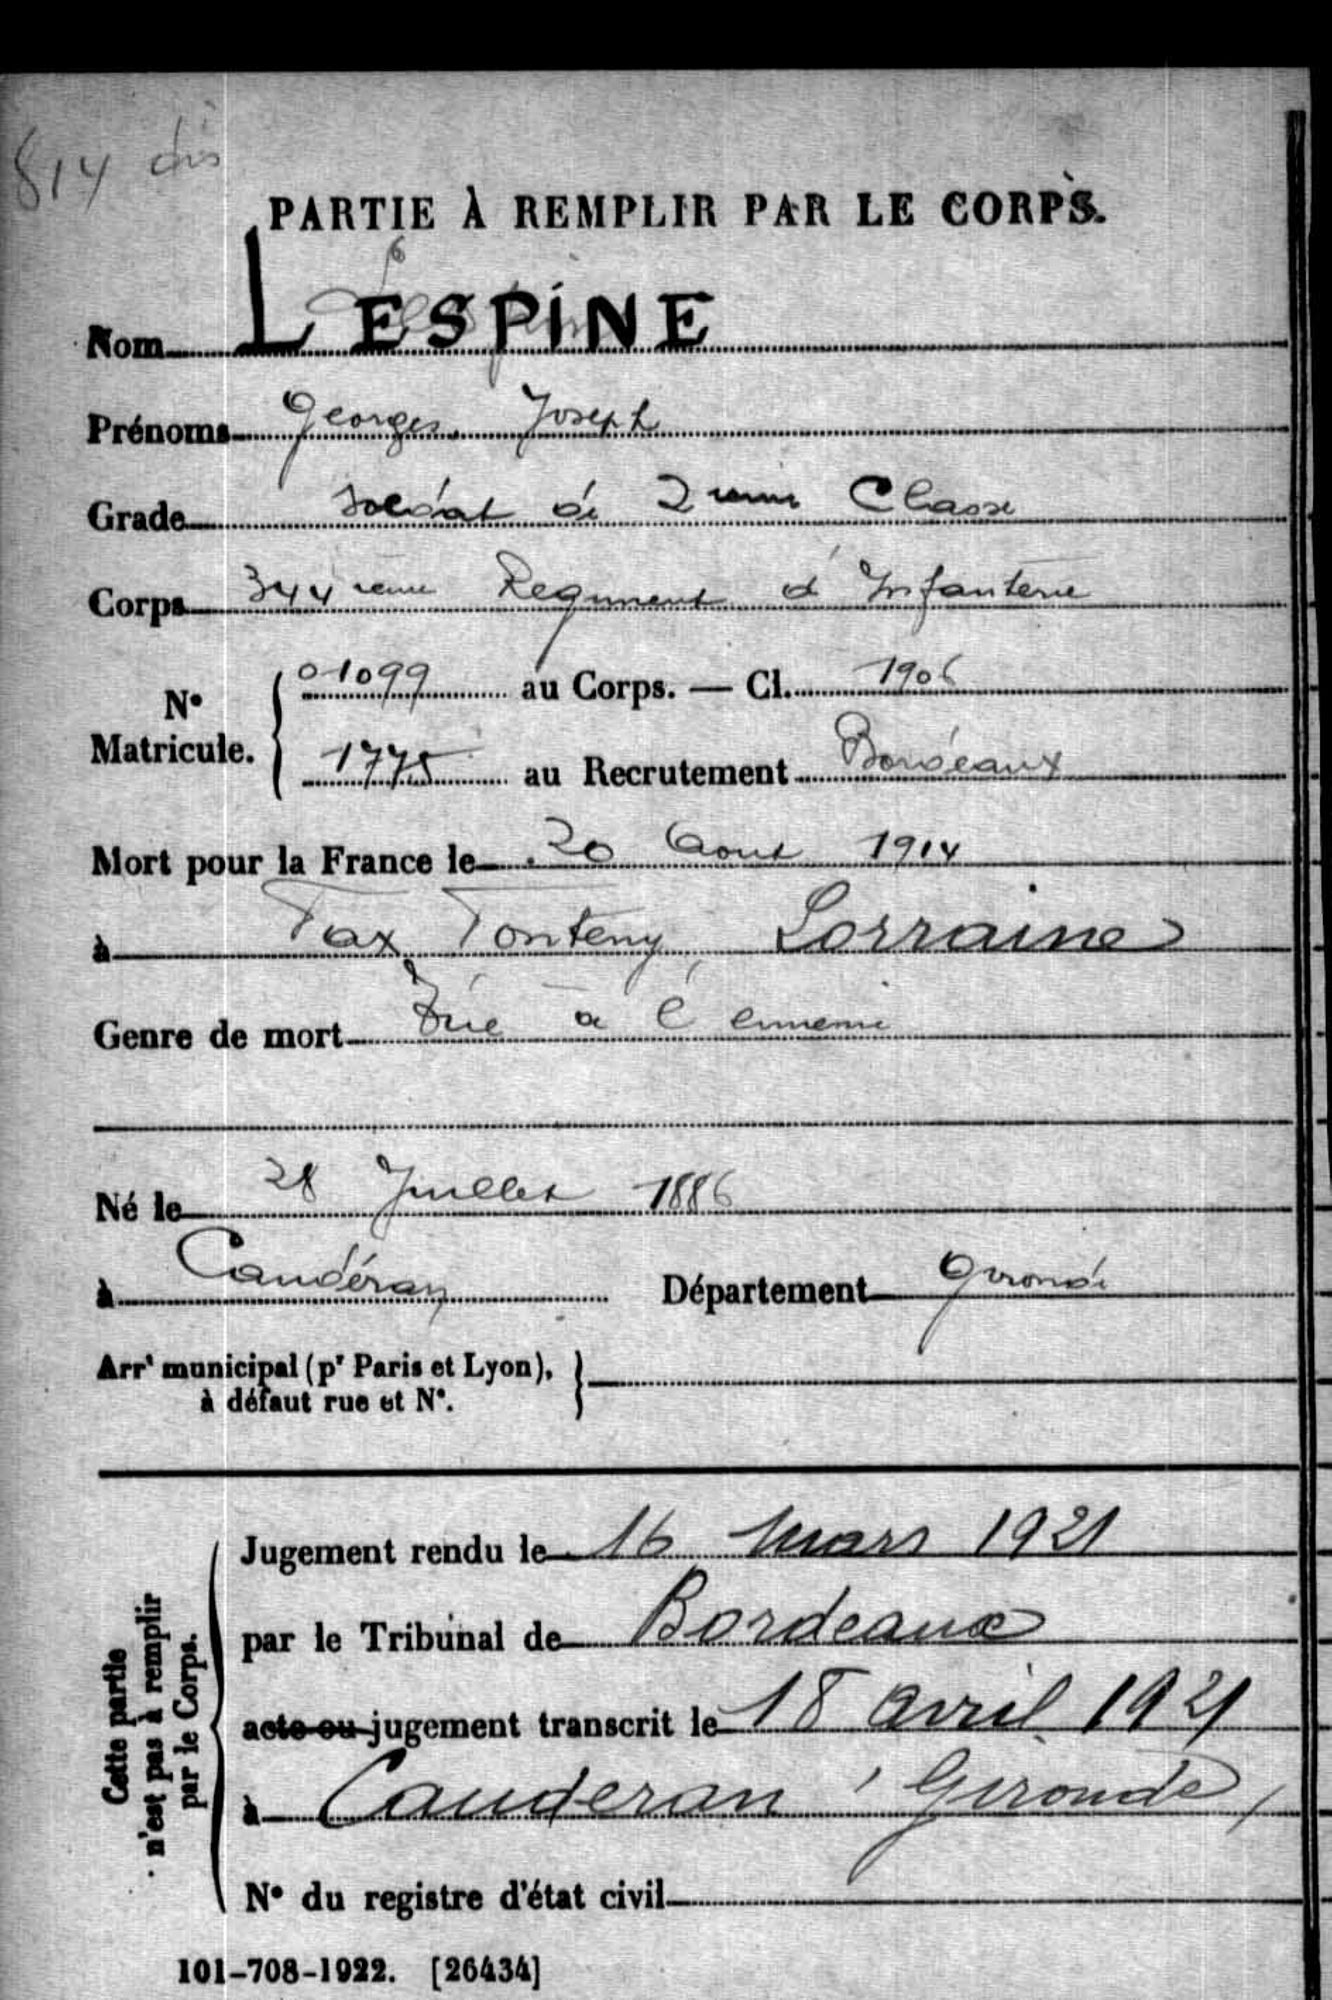 814 dis
PARTIE À REMPLIR PAR LE CORPS.
Nom LESPINE
Prénoms Georges Joseph
Grade Soldat de 2ième Classe
Corps 344ième Regiment d'Infanterie
N° Matricule. 01099 au Corps. — Cl. 1906
1775 au Recrutement Bordeaux
Mort pour la France le 20 Aout 1914
à Fax Fonteny Lorraine
Genre de mort Tué à l'ennemi
Né le 28 Juillet 1886
à Caudéran Département Gironde
Arrt municipal (pr Paris et Lyon),
à défaut rue et N°.
Cette partie
n'est pas à remplir
par le Corps.
Jugement rendu le 16 Mars 1921
par le Tribunal de Bordeaux
acte ou jugement transcrit le 18 avril 1921
à Cauderan (Gironde)
N° du registre d'état civil
101-708-1922. [26434]